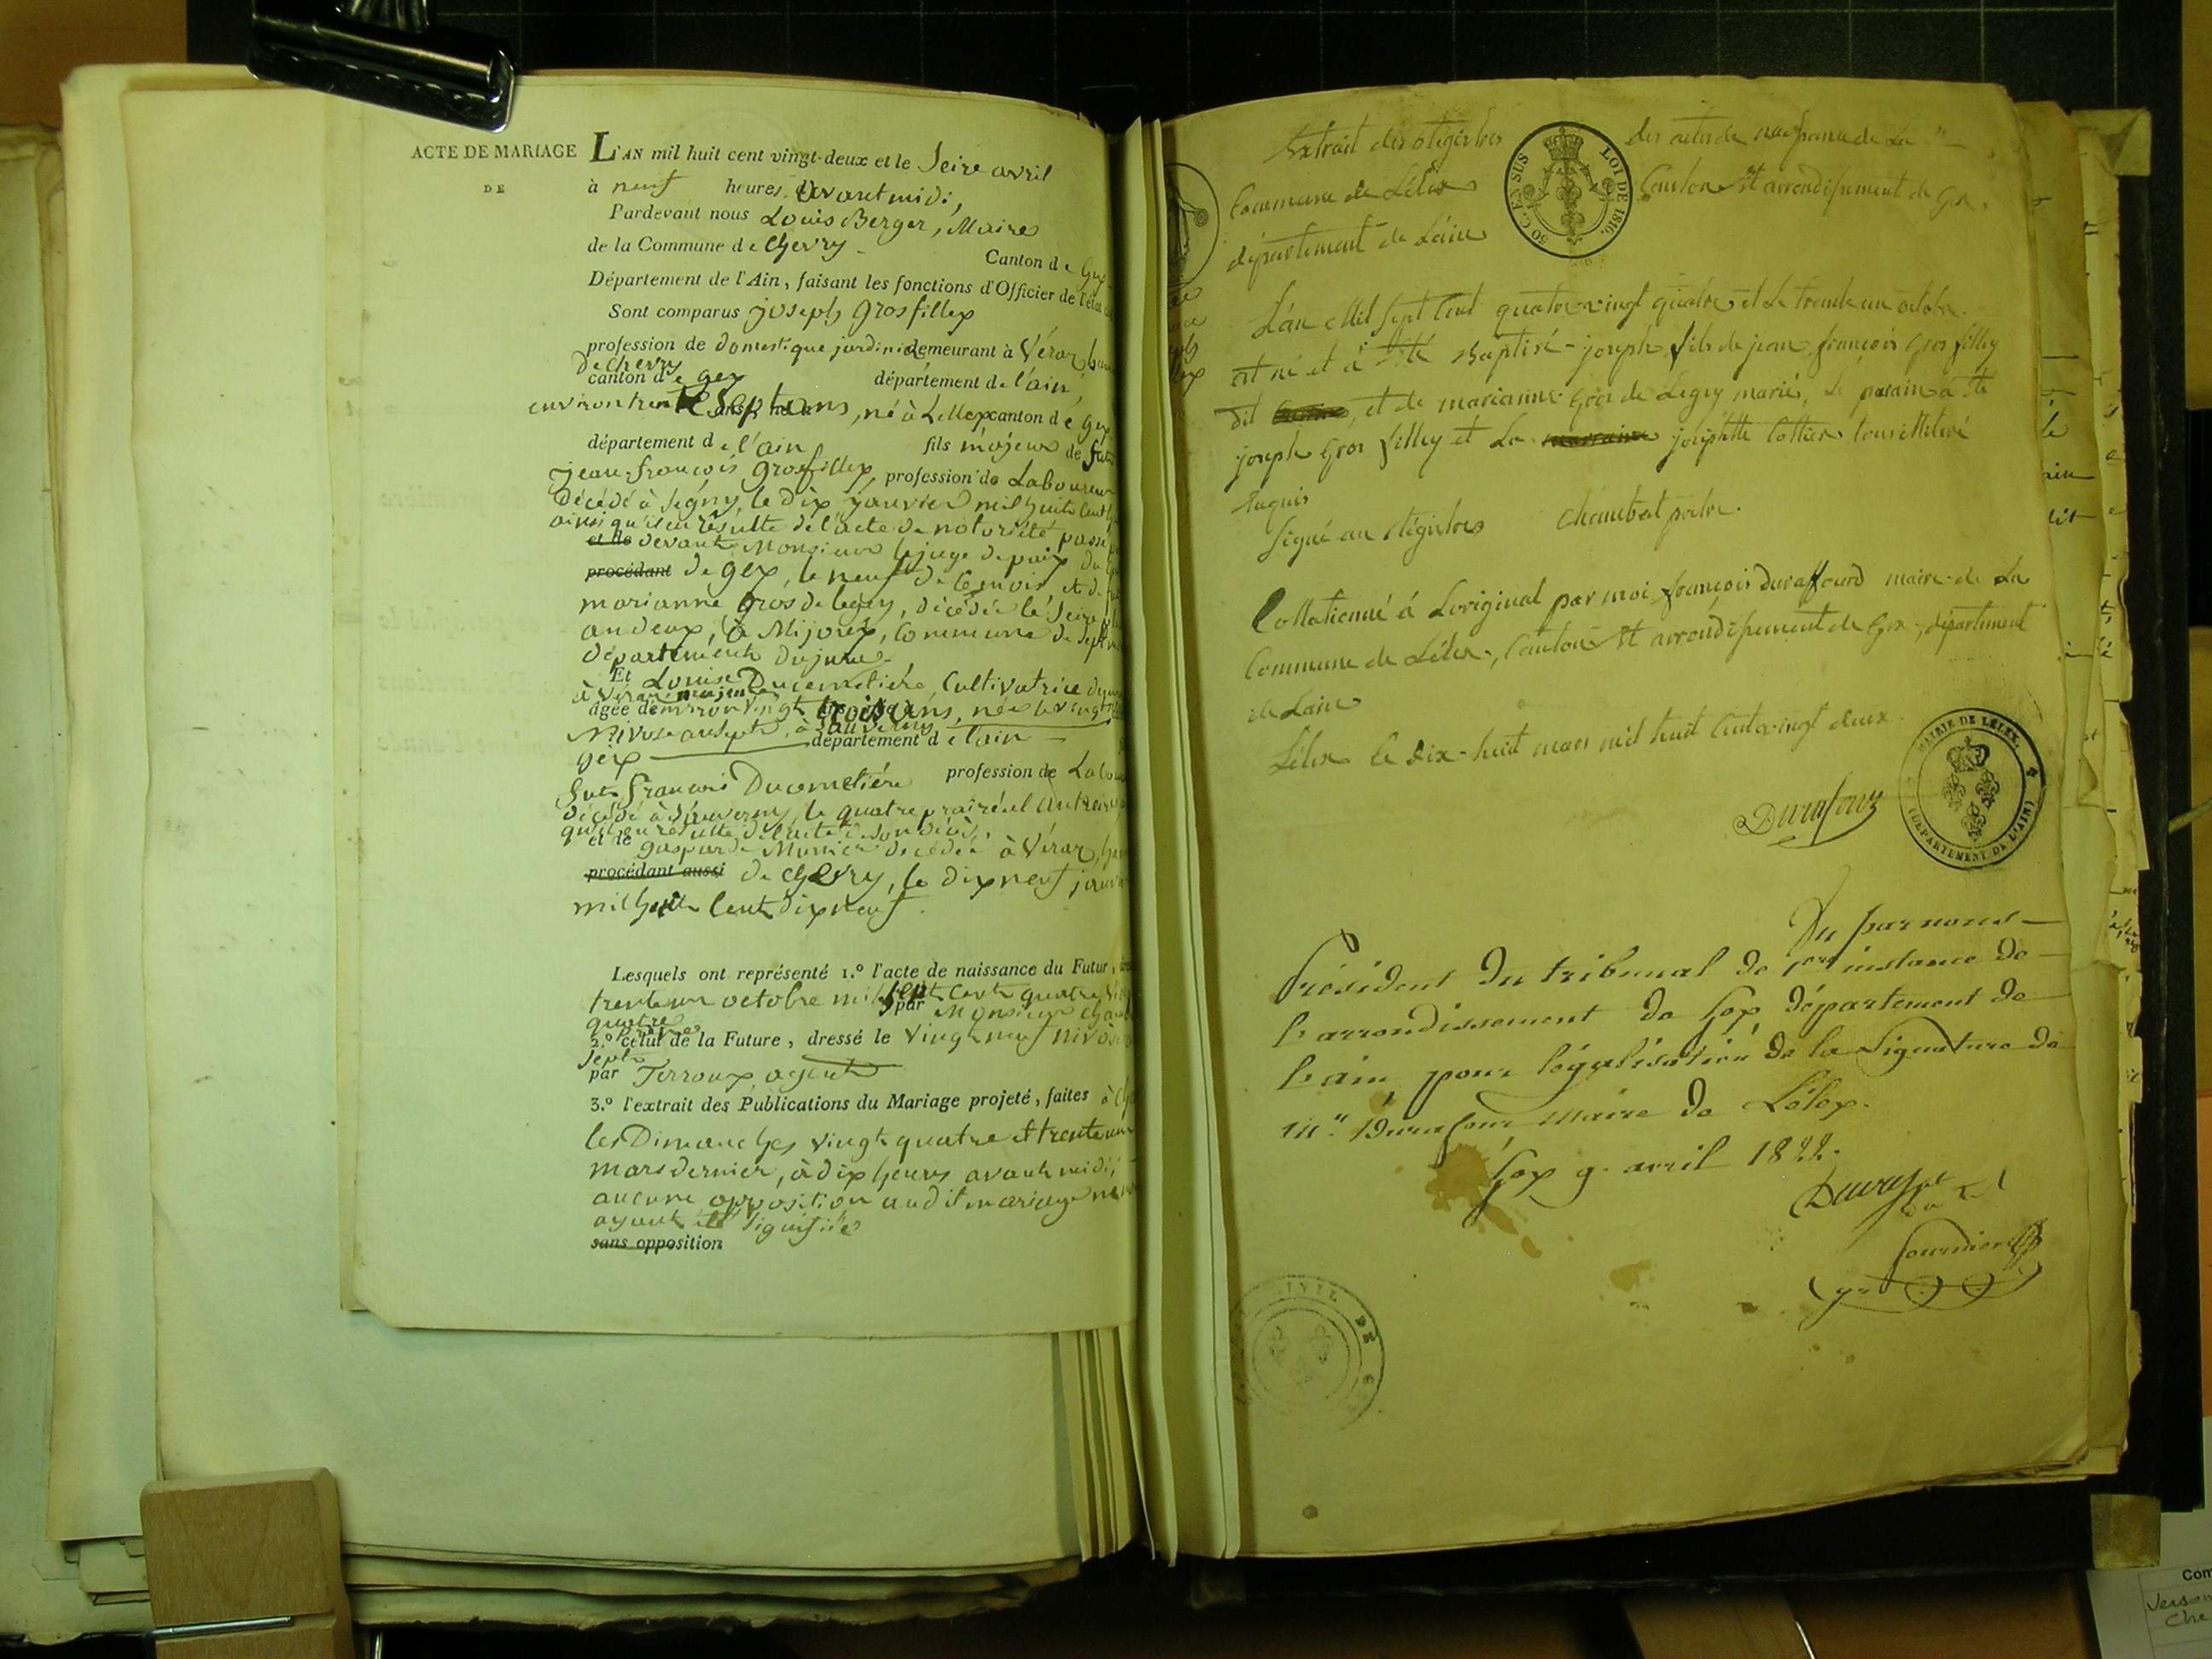 ACTE DE MARIAGE
DE
L'AN mil huit cent vingt-deux et le Seize avril
à neuf heures avant midi,
Pardevant nous Louis Berger, Maire
de la Commune de Chevry Canton de Gex
Département de l'Ain, faisant les fonctions d'Officier de l'état
Sont comparus joseph Grosfillex
profession de domestique jardinier demeurant à Véraz
de Chevry
canton de gex département de l'ain,
environ trente sept ans, né à Lellex canton de gex
département de l'ain fils majeur de
jean-françois Grosfillex, profession de Laboureur
décédé à Segny, le dix janvier mil huit cent
ainsi qu'il en résulte de l'acte de notoriété passé
et de devant Monsieur le juge de paix du
procédant de gex, le neuf de ce mois, et de
marianne gros de legny, décédée le Seize
an deux, à Mijoux, Commune de Sept
département du jura.
Et Louise Ducimetière, Cultivatrice
à Véraz majeure
agée d'environ vingt trois ans, née le vingt
Nivose an Sept, à Sauverny
gex département de l'ain
françois Ducimetière profession de
décédé à Sauverny, le quatre prairéal an treize
qu'il en résulte de l'acte de son décès,
et de gasparde Munier décédée à Véraz,
procédant aussi de Chevry, le dix neuf
mil huit Cent dix neuf.
Lesquels ont représenté 1.º l'acte de naissance du Futur,
trente un octobre mil sept Cent quatre
quatre par Monsieur
prêtre
2.º celui de la Future, dressé le vingt neuf nivôse
Sept
par Terroux agent
3.º l'extrait des Publications du Mariage projeté, faites à
les Dimanches vingt quatre et trente un
mars dernier, à dix heures avant midi,
aucune opposition audit mariage
ayant été Signifiée
sans opposition
Extrait des Régistres des actes de naissance de La
Commune de Lélex Canton et arrondissement de Gex,
département de Lain
50 C. EN SUS
LOI DE 1816.
L'an Mil Sept Cent quatre vingt quatre et Le trente un octobre
est né et a été Baptisé joseph fils de jean françois Gros filley
dit et de marianne Gros de Legny mariés, le parain a été
joseph Gros filley et La marraine joséphte Cottier
Requis
Signé au Régistre Chambat
Collationné à Loriginal par moi françois duraffourd maire de La
Commune de Lélex, Canton et arrondissement de Gex, département
de Lain
Lélex le dix-huit mars mil huit Cent vingt deux
Durafour
MAIRIE DE LÉLEX.
(DÉPARTEMENT DE L'AIN)
Vu par nous
Président du tribunal de 1ere instance de
l'arrondissement de Gex département de
l'ain, pour légalisation de la Signature de
Mr. Durafour maire de Lélex.
Gex 9 avril 1822.
fournier
CIVIL DE